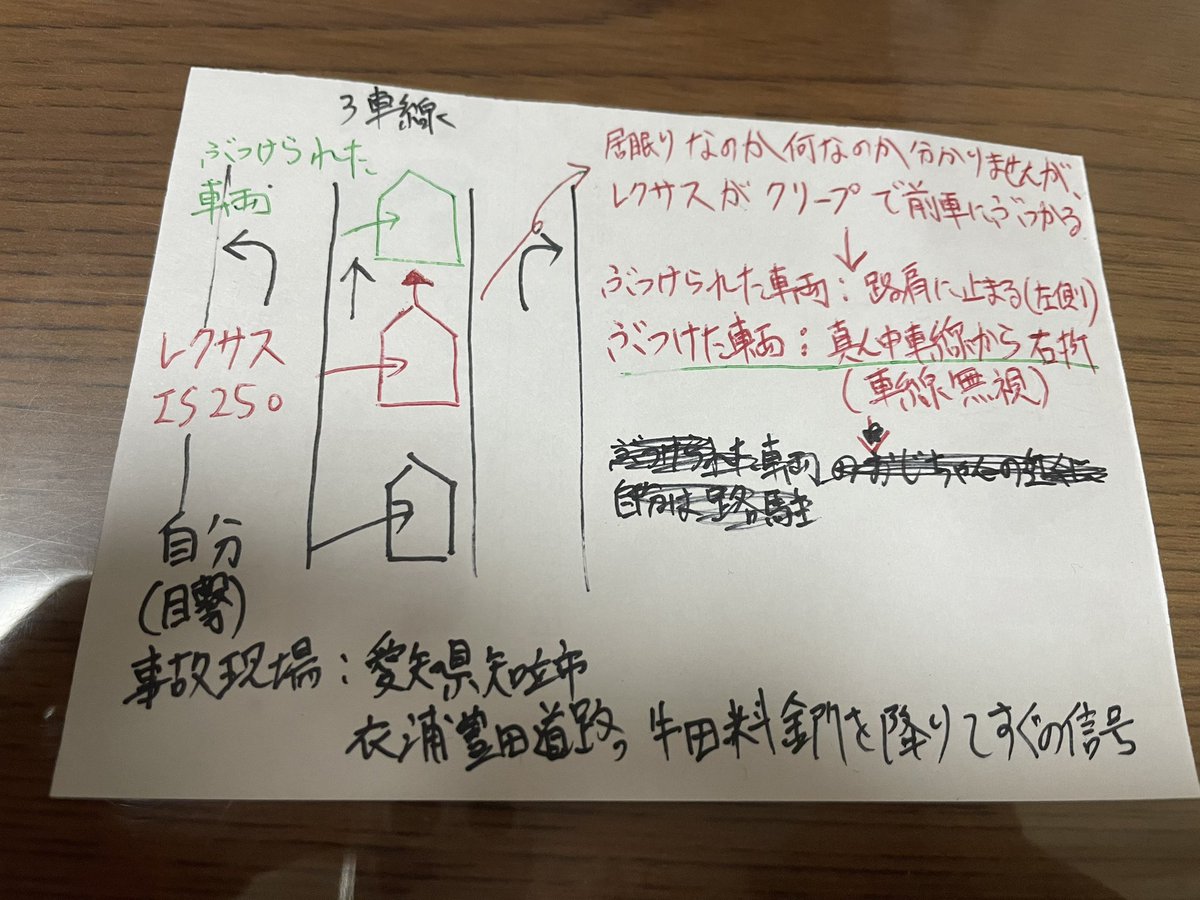 3車線
ぶつけられた
車両
レクサス
IS250
自分
(目撃)
居眠りなのか何なのか分かりませんが、
レクサスがクリープで前車にぶつかる
ぶつけられた車両：路肩に止まる(左側)
ぶつけた車両：真ん中車線から右折
(車線無視)
車両
路駐
事故現場：愛知県知立市
衣浦豊田道路。牛田料金所を降りてすぐの信号